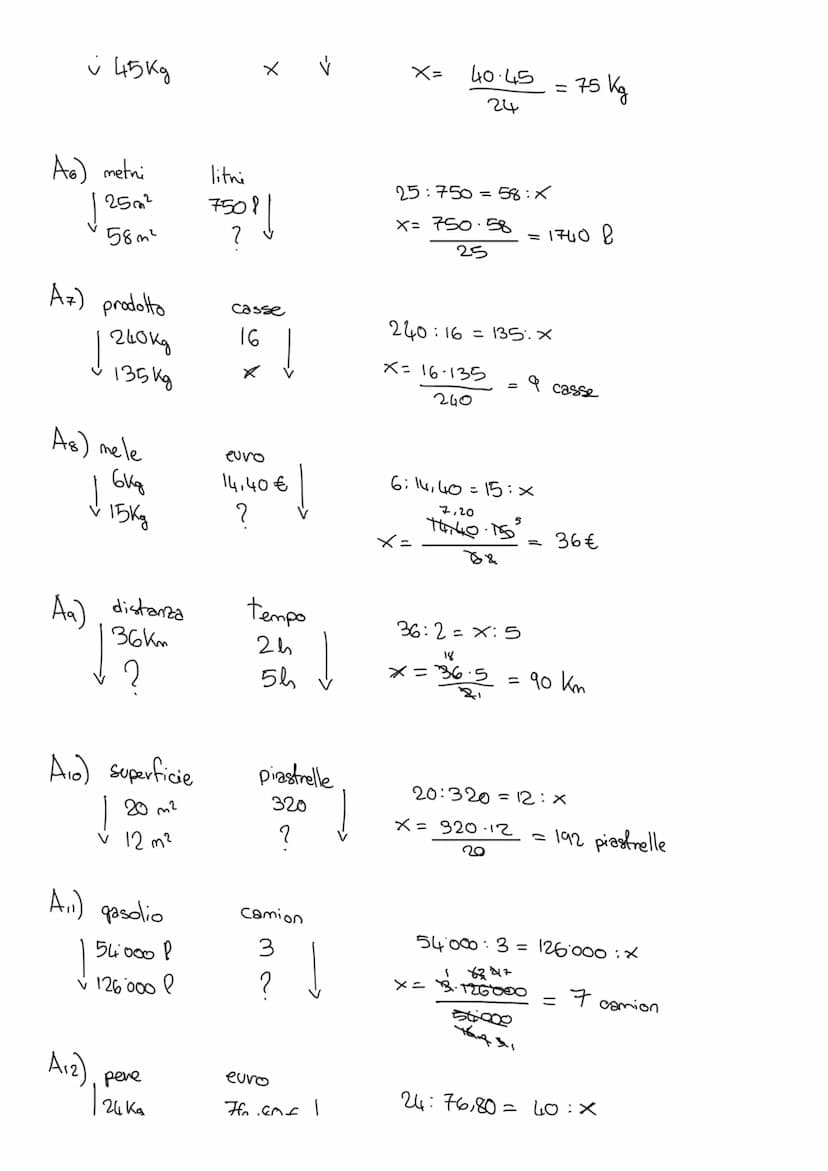 45Kg x x= 40·45/24 = 75 Kg
A6) metri litri
25m² 750 l 25:750 = 58:x
58m² ? x= 750·58/25 = 1740 l
A7) prodotto casse
240Kg 16 240:16 = 135:x
135Kg x x= 16·135/240 = 9 casse
A8) mele euro
6Kg 14,40 € 6:14,40 = 15:x
15Kg ? 7,20 5
x= 14,40·15/6 2 = 36€
A9) distanza tempo
36Km 2h 36:2 = x:5
? 5h 18
x = 36·5/2 1 = 90 Km
A10) superficie piastrelle
20 m² 320 20:320 = 12:x
12 m² ? x = 320·12/20 = 192 piastrelle
A11) gasolio camion
54'000 l 3 54'000:3 = 126'000:x
126'000 l ? x= 3·126'000/54'000 = 7 camion
A12) pere euro
24Kg 24:76,80 = 40:x